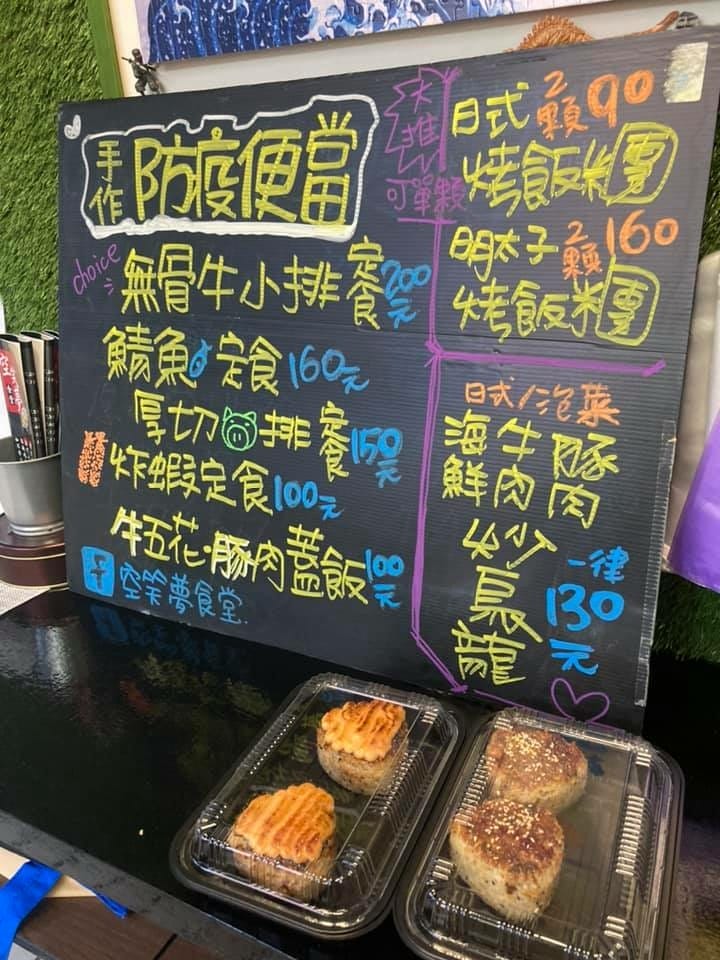 手作 防疫便當
choice
無骨牛小排定食 200元
鯖魚定食 160元
厚切排定食 150元
炸蝦定食 100元
牛五花・豚肉蓋飯 100元
f 空笑夢食堂
大推
可單顆
日式 2顆90
烤飯糰
明太子 2顆160
烤飯糰
日式/泡菜
海鮮 牛肉 豚肉
炒烏龍
一律130元